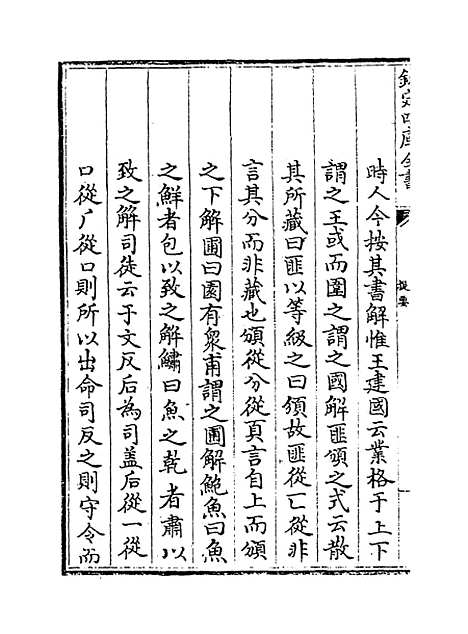 欽定四庫全書
提要
時人今按其書解惟王建國云業格于上下
謂之王或而圍之謂之國解匪頒之式云散
其所藏曰匪以等級之曰頒故匪從匚從非
言其分而非藏也頒從分從頁言自上而頒
之下解圃曰園有衆甫謂之圃解鮑魚曰魚
之鮮者包以致之解鱐曰魚之乾者肅以
致之解司徒云于文反后為司盖后從一從
口從厂從口則所以出命司反之則守令而